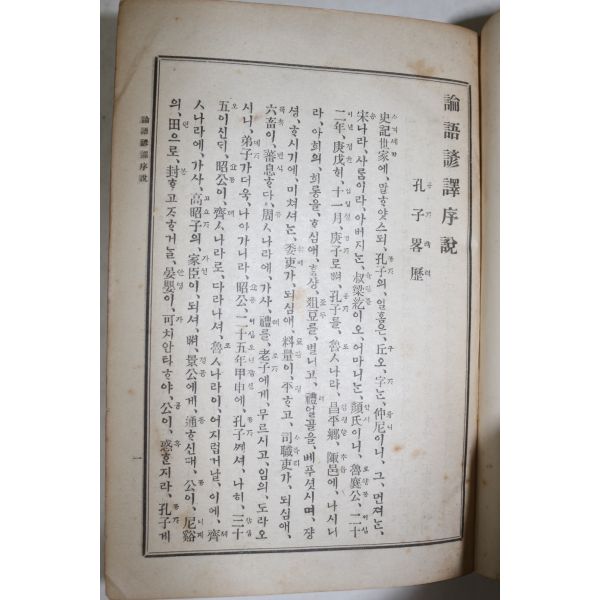 論語諺譯序說
孔子畧歷
史記世家에, 말ᄒᆞ얏스되, 孔子의, 일홈은, 丘오, 字ᄂᆞᆫ, 仲尼이니, 그, 먼져ᄂᆞᆫ,
宋나라, 사ᄅᆞᆷ이라, 아버지ᄂᆞᆫ, 叔梁紇이오, 어마니ᄂᆞᆫ, 顔氏이니, 魯襄公, 二十
二年, 庚戌ᄒᆡ, 十一月, 庚子로ᄡᅥ, 孔子를, 魯ㅅ나라, 昌平鄕, 陬邑에, 나시니
라, 아희의, 희롱을, ᄒᆞ심애, ᄒᆞᆼ샹, 俎豆를, 버리고, 禮얼골을, 베푸셧시며, 쟝
셩, ᄒᆞ시기에, 미쳐셔ᄂᆞᆫ, 委吏가, 되심애, 料量이, 平ᄒᆞ고, 司職吏가, 되심애,
六畜이, 蕃息ᄒᆞ다, 周ㅅ나라에, 가사, 禮를, 老子에게, 무르시고, 임의, 도라오
시니, 弟子가더욱, 나아가니라, 昭公, 二十五年甲申에, 孔子ᄭᅦ셔, 나히, 三十
五이신ᄃᆡ, 昭公이, 齊ㅅ나라로, 다라나셔, 魯ㅅ나라이, 어지럽거날, 이에, 齊
ㅅ나라에, 가사, 高昭子의, 家臣이, 되셔, ᄡᅥ, 景公에게, 通ᄒᆞ신대, 公이, 尼谿
의, 田으로, 封ᄒᆞ고ᄌᆞᄒᆞ거ᄂᆞᆯ, 晏嬰이, 可치안타ᄒᆞ야, 公이, 惑ᄒᆞᆫ지라, 孔子게
論語諺譯序說
一